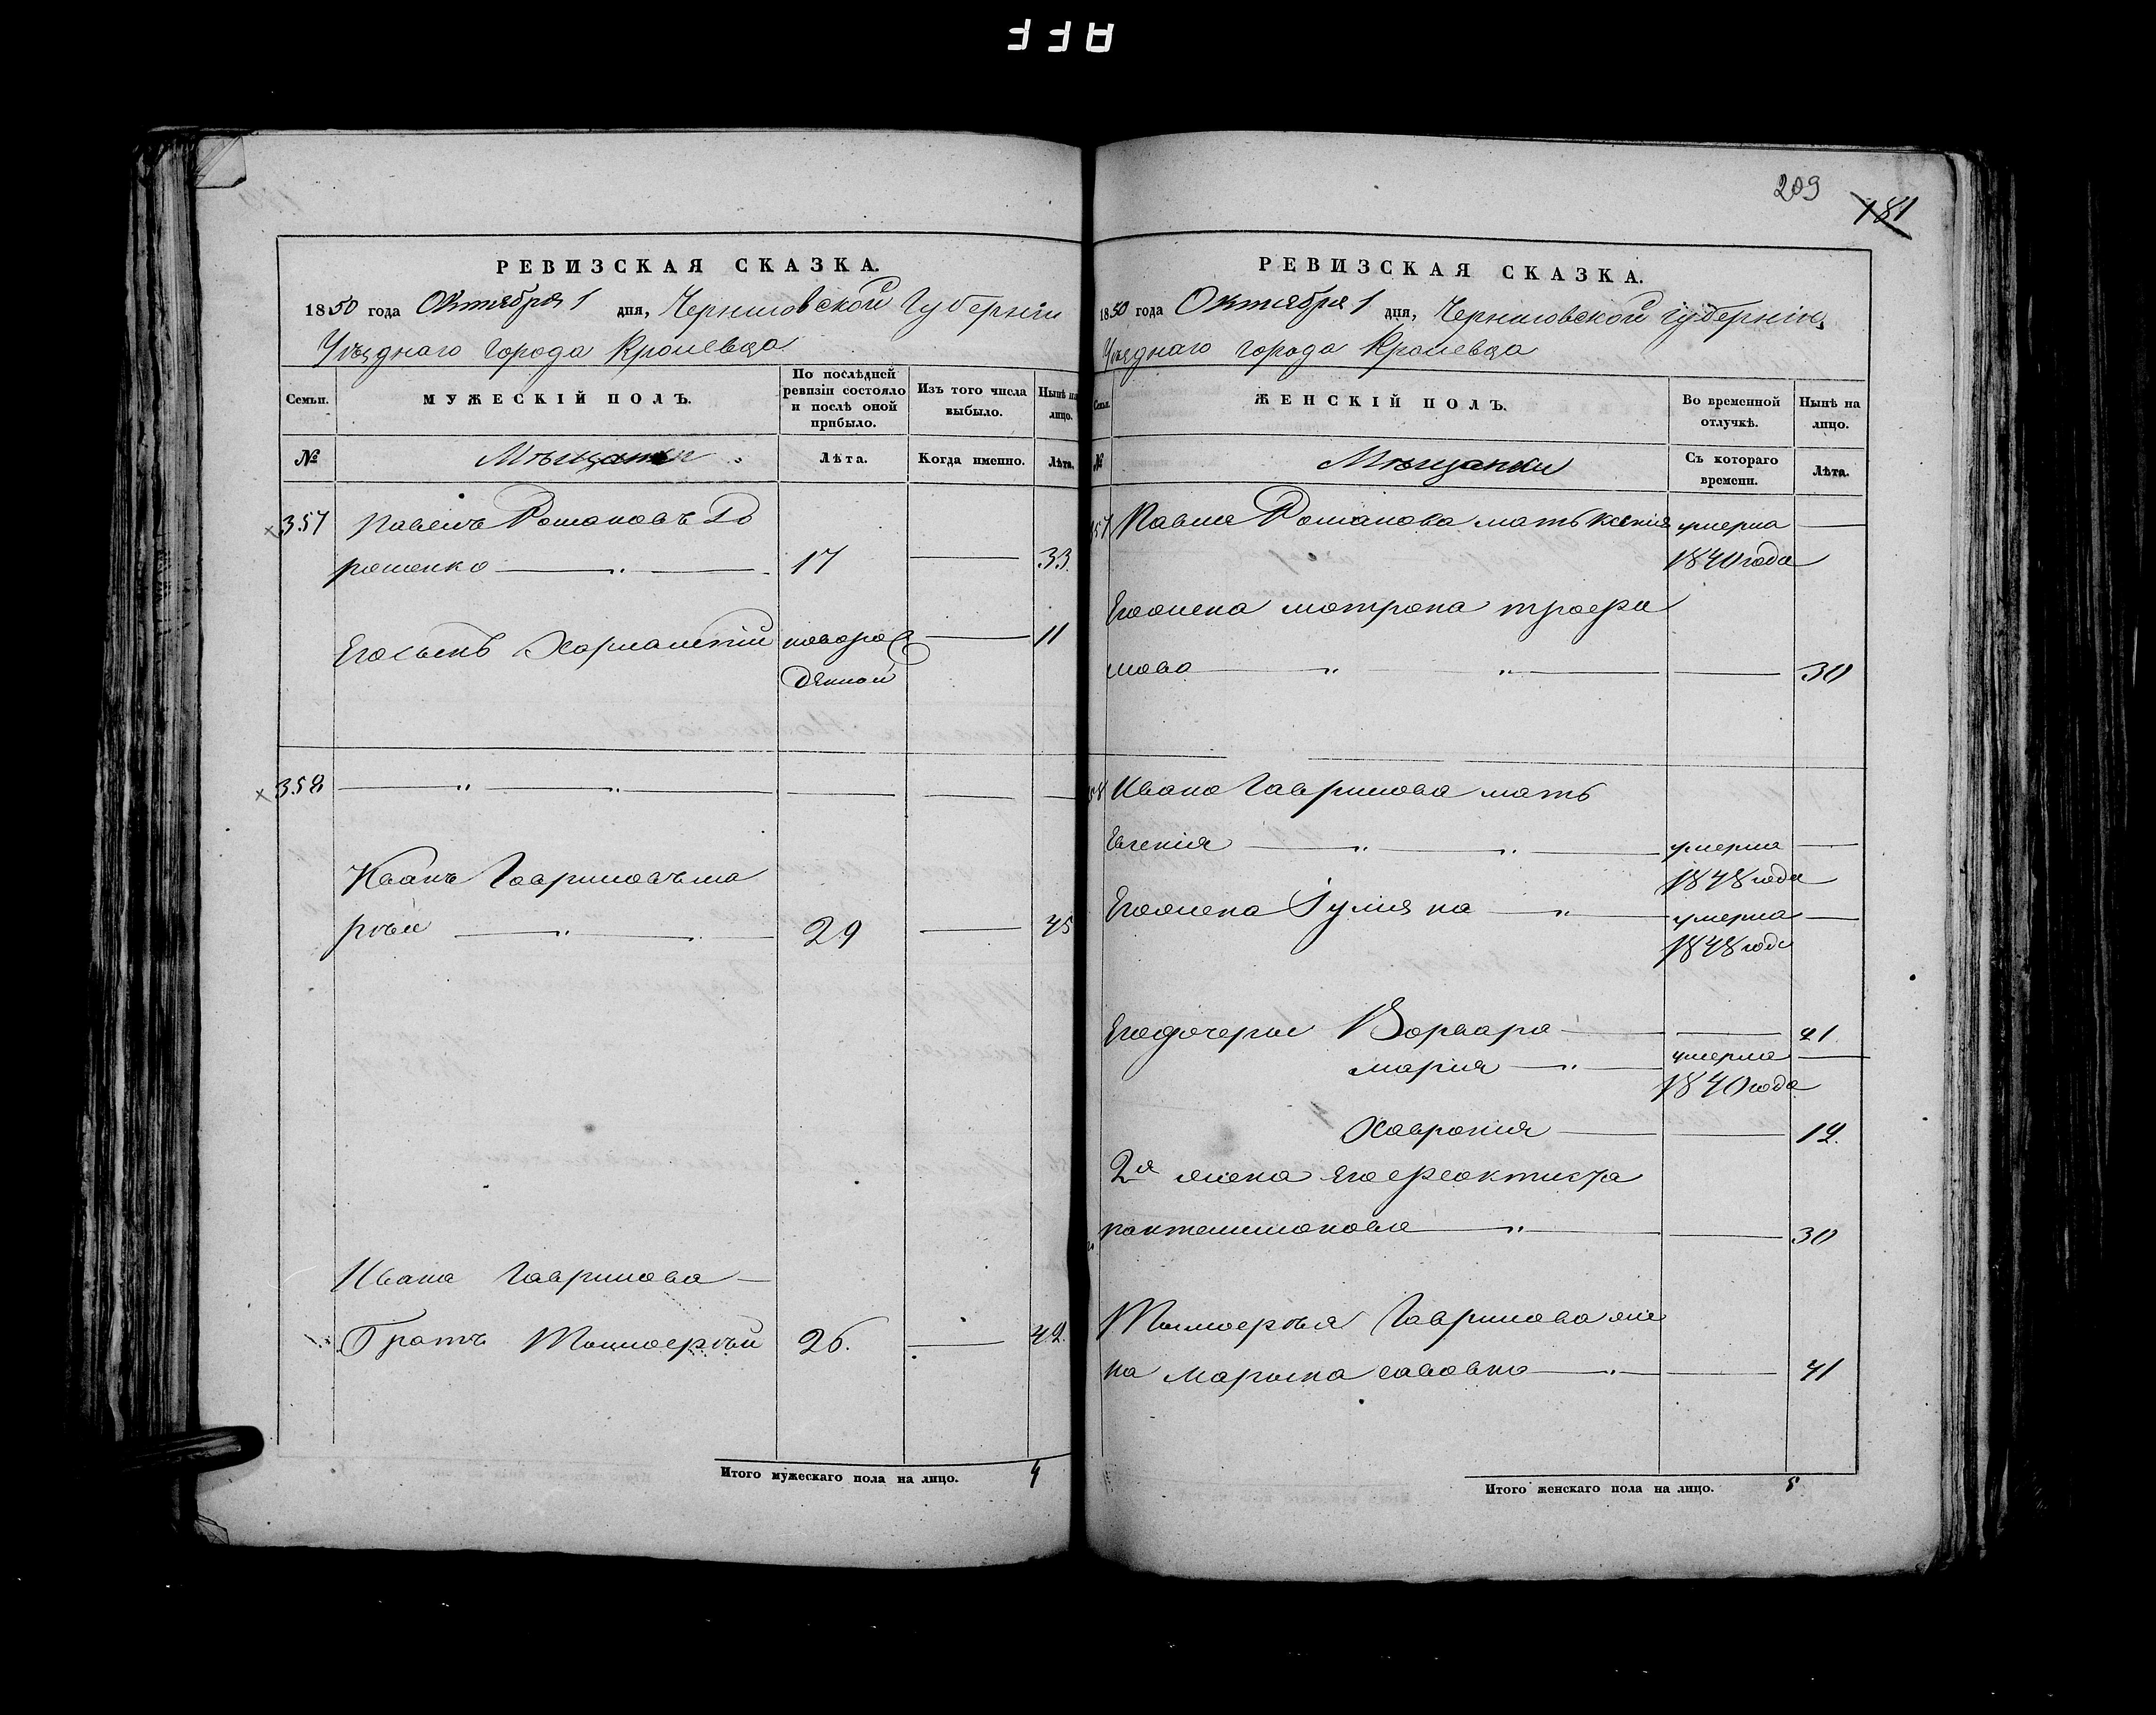 AFF
РЕВИЗСКАЯ СКАЗКА.
1850 года Октября 1 дня, Черниговской Губернии
Уѣзднаго города Кролевца
Семьи.
МУЖЕСКІЙ ПОЛЪ.
По послѣдней ревизіи состояло и послѣ оной прибыло.
Изъ того числа выбыло.
Нынѣ на лицо.
№
Мѣщане
Лѣта.
Когда именно.
Лѣта.
357 Павелъ Романовъ До
рошенко 17 33
Его сынъ Харлампій новорож 11
денной
358
Иванъ Гавриловъ
29 45
Ивана Гаврилова
Братъ Тимоѳей 26. 42.
Итого мужескаго пола на лицо. 4
209
181
РЕВИЗСКАЯ СКАЗКА.
1850 года Октября 1 дня, Черниговской губерніи
Уѣзднаго города Кролевца
Семьи.
ЖЕНСКІЙ ПОЛЪ.
Во временной отлучкѣ.
Нынѣ на лицо.
№
Мѣщанки
Съ котораго времени.
Лѣта.
357 Павла Романова мать Ксенія умерла
1840 года
Его жена Матрона трофи
мова 30
358 Ивана Гаврилова мать
Евгенія умерла
1848 года
Его жена Гулияна умерла
1848 года
Его дочери Варвара 21
Марія умерла
1840 года
Хаврония 12.
2я жена Его феоктиста
пантелимонова 30
Тимофея Гаврилова же
на Марына савовна 41
Итого женскаго пола на лицо. 5